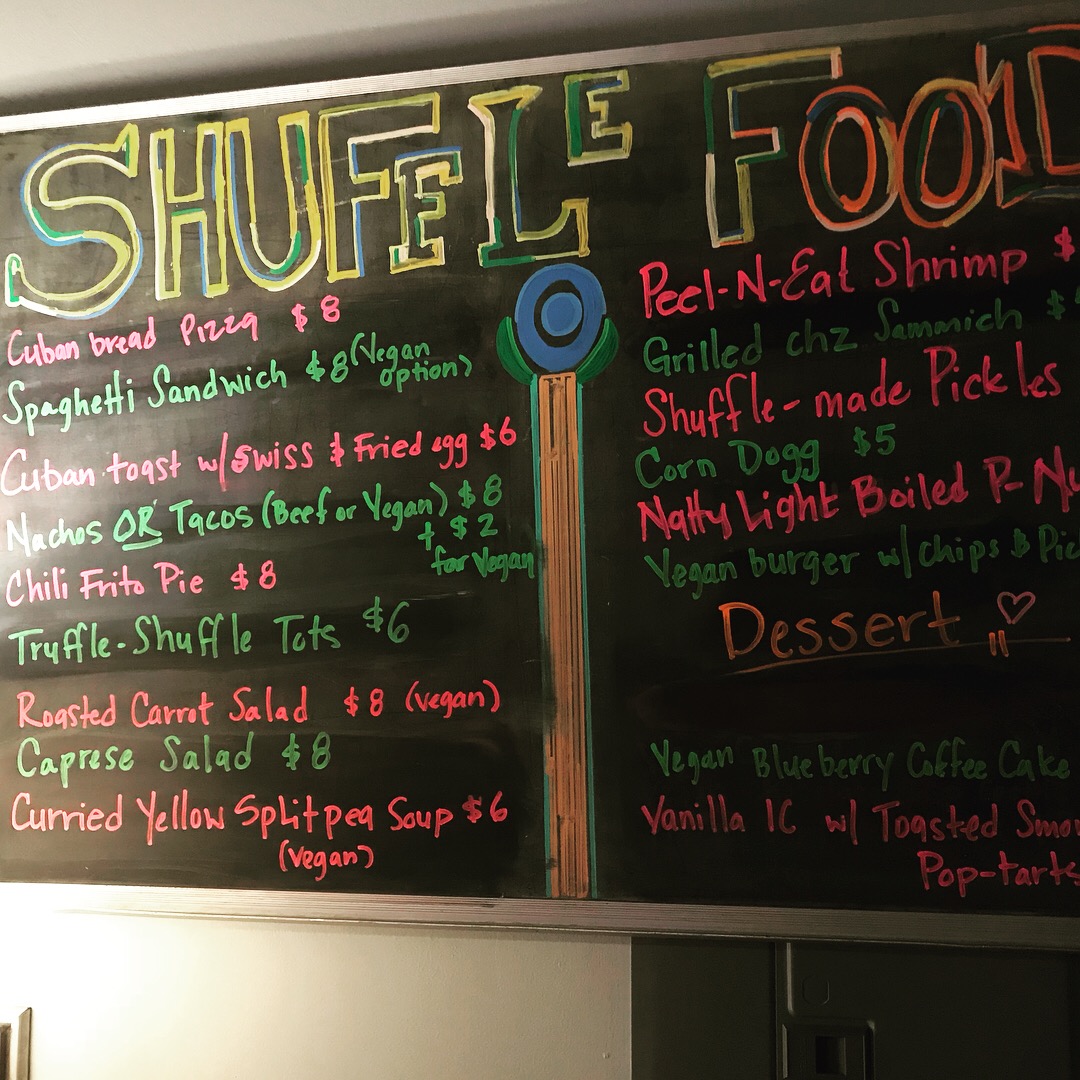 SHUFFLE FOOD
Cuban bread Pizza $8
Spaghetti Sandwich $8 (Vegan option)
Cuban toast w/ Swiss & Fried egg $6
Nachos OR Tacos (Beef or Vegan) $8
+ $2
for Vegan
Chili Frito Pie $8
Truffle-Shuffle Tots $6
Roasted Carrot Salad $8 (vegan)
Caprese Salad $8
Curried Yellow Splitpea Soup $6
(vegan)
Peel-N-Eat Shrimp $
Grilled chz Sammich $
Shuffle-made Pickles
Corn Dogg $5
Natty Light Boiled P-
Vegan burger w/ chips &
Dessert
Vegan Blueberry Coffee Cake
Vanilla IC w/ Toasted
Pop-tarts